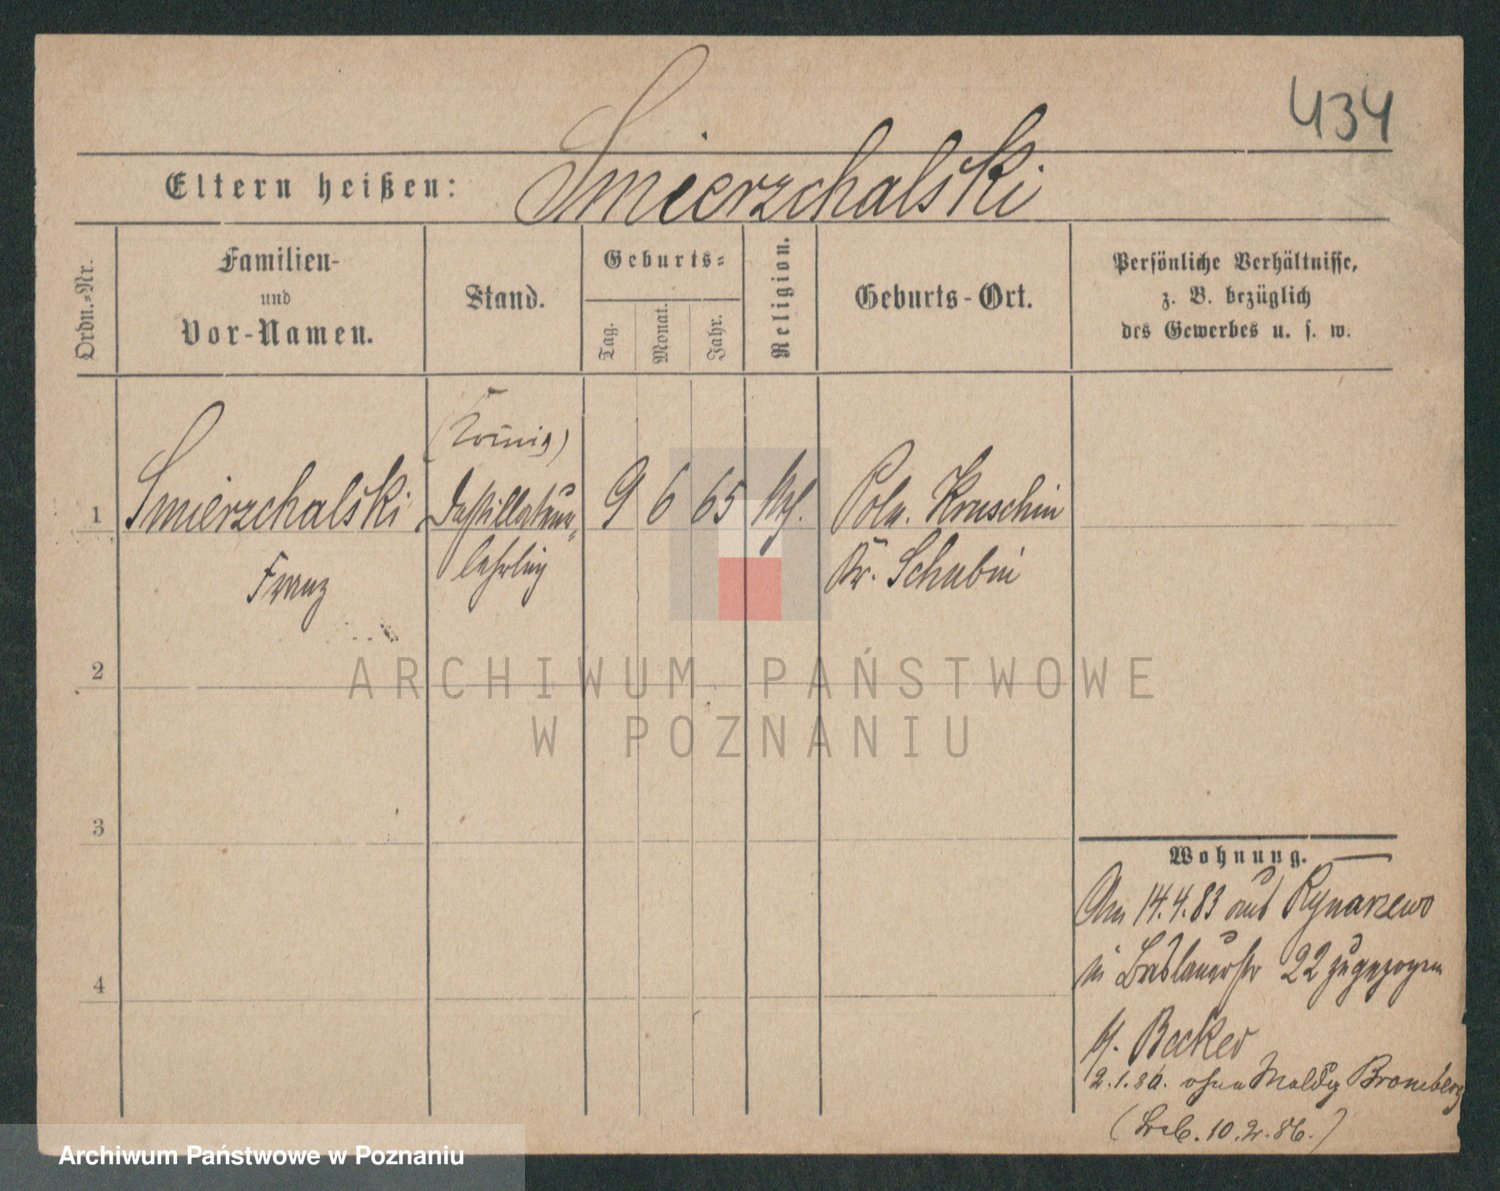 434
Eltern heißen: Smierzchalski
Ordn.-Nr.
Familien-
und
Vor-Namen.
Stand.
Geburts-
Tag.
Monat.
Jahr.
Religion.
Geburts-Ort.
Persönliche Verhältnisse,
z. B. bezüglich
des Gewerbes u. s. w.
1 Smierzchalski Destillateur- 9 6 65 kth. Poln. Kruschin
Franz lehrling Kr. Schubin
2
3
4
Wohnung.
Am 14.4.83 aus Rynarzewo
in Breslauerstr 22 zugezogen
b/. Becker
2.1.86. ohne Meldg Bromberg
10.2.86.)
ARCHIWUM PAŃSTWOWE
W POZNANIU
Archiwum Państwowe w Poznaniu